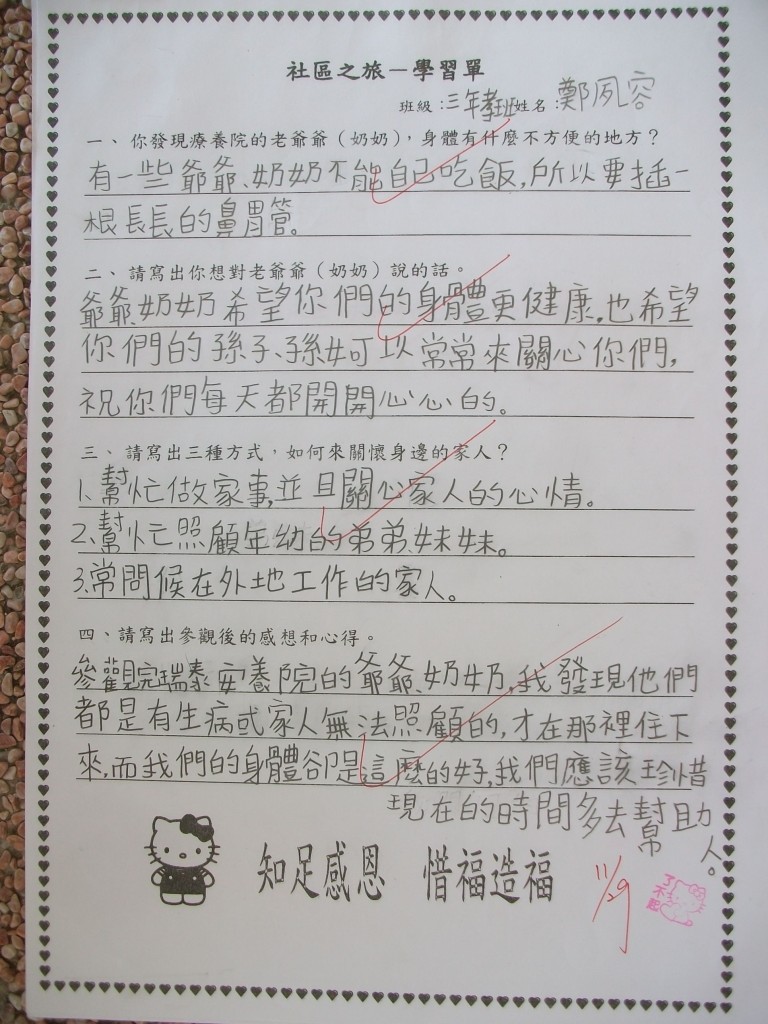 社區之旅－學習單
班級：三年孝班姓名：鄭夙容
一、你發現療養院的老爺爺（奶奶），身體有什麼不方便的地方？
有一些爺爺、奶奶不能自己吃飯，所以要插一
根長長的鼻胃管。
二、請寫出你想對老爺爺（奶奶）說的話。
爺爺、奶奶希望你們的身體更健康，也希望
你們的孫子、孫女可以常常來關心你們，
祝你們每天都開開心心的。
三、請寫出三種方式，如何來關懷身邊的家人？
1、幫忙做家事，並且關心家人的心情。
2、幫忙照顧年幼的弟弟、妹妹。
3、常問候在外地工作的家人。
四、請寫出參觀後的感想和心得。
參觀完瑞泰安養院的爺爺、奶奶，我發現他們
都是有生病或家人無法照顧的，才在那裡住下
來，而我們的身體卻是這麼的好，我們應該珍惜
現在的時間多去幫助人。
知足感恩 惜福造福
11/29
了不起